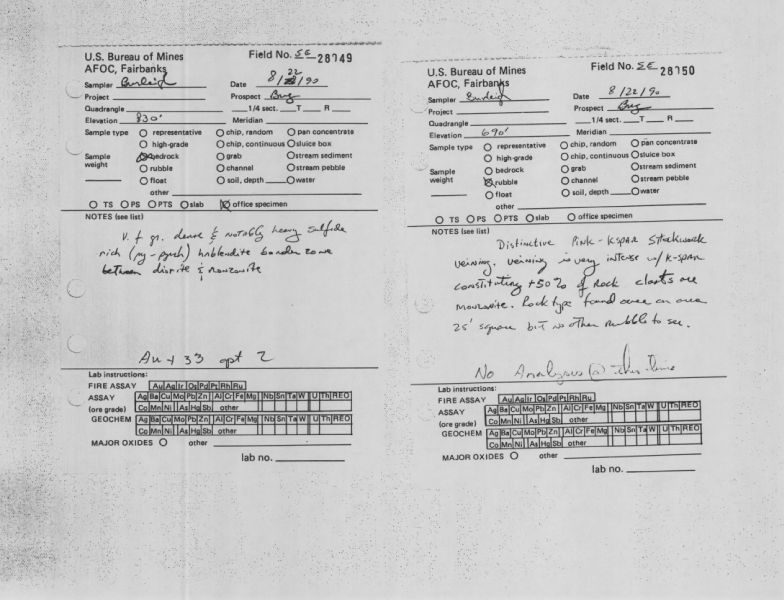 U.S. Bureau of Mines
AFOC, Fairbanks
Field No. SE 28149
Sampler Burleigh
Date 8/22/90
Project
Prospect Bug
Quadrangle 1/4 sect. T R
Elevation 830' Meridian
Sample type
representative chip, random pan concentrate
high-grade chip, continuous sluice box
Sample weight
bedrock grab stream sediment
rubble channel stream pebble
float soil, depth water
other
TS PS PTS slab office specimen
NOTES (see list)
V. f gr. dense & notably heavy sulfide
rich (py-pyrrh) hnblendite border zone
between diorite & monzonite
Au + 33 opt 2
Lab instructions:
FIRE ASSAY Au Ag Ir Os Pd Pt Rh Ru
ASSAY Ag Ba Cu Mo Pb Zn Al Cr Fe Mg Nb Sn Ta W U Th REO
(ore grade) Co Mn Ni As Hg Sb other
GEOCHEM Ag Ba Cu Mo Pb Zn Al Cr Fe Mg Nb Sn Ta W U Th REO
Co Mn Ni As Hg Sb other
MAJOR OXIDES other
lab no.
U.S. Bureau of Mines
AFOC, Fairbanks
Field No. SE 28150
Sampler Burleigh
Date 8/22/90
Project
Prospect Bug
Quadrangle 1/4 sect. T R
Elevation 690' Meridian
Sample type
representative chip, random pan concentrate
high-grade chip, continuous sluice box
Sample weight
bedrock grab stream sediment
rubble channel stream pebble
float soil, depth water
other
TS PS PTS slab office specimen
NOTES (see list)
Distinctive Pink-Kspar Stockwork
veining. veining is very intense w/ K-spar
constituting +50% of Rock clasts are
monzonite. Rock type found over an area
25' square but no other rubble to see.
No Analyses @ this time
Lab instructions:
FIRE ASSAY Au Ag Ir Os Pd Pt Rh Ru
ASSAY Ag Ba Cu Mo Pb Zn Al Cr Fe Mg Nb Sn Ta W U Th REO
(ore grade) Co Mn Ni As Hg Sb other
GEOCHEM Ag Ba Cu Mo Pb Zn Al Cr Fe Mg Nb Sn Ta W U Th REO
Co Mn Ni As Hg Sb other
MAJOR OXIDES other
lab no.